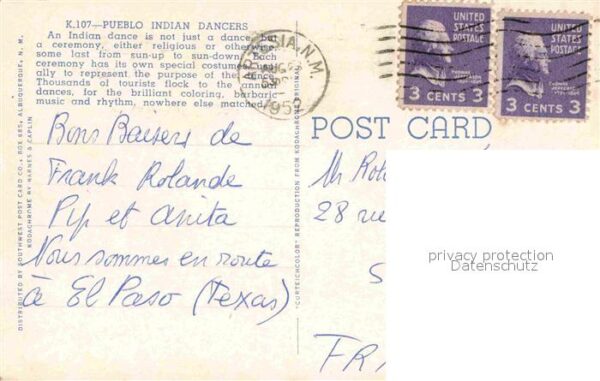 K.107—PUEBLO INDIAN DANCERS
An Indian dance is not just a dance, but
a ceremony, either religious or otherwise,
some last from sun-up to sun-down. Each
ceremony has its own special costumes usu-
ally to represent the purpose of the dance.
Thousands of tourists flock to the annual
dances, for the brilliant coloring, barbaric
music and rhythm, nowhere else matched.
DISTRIBUTED BY SOUTHWEST POST CARD CO., BOX 685, ALBUQUERQUE, N. M.
KODACHROME BY BARNES & CAPLIN
Bons Baisers de
Frank Rolande
Pip et Anita
Nous sommes en route
à El Paso (Texas)
"CURTEICHCOLOR" REPRODUCTION FROM KODACHROME ORIGINAL
N.M.
UNITED
STATES
POSTAGE
THOMAS
JEFFERSON
3 CENTS 3
UNITED
STATES
POSTAGE
THOMAS
JEFFERSON
3 CENTS 3
POST CARD
Mr
28 rue
S
FR
privacy protection
Datenschutz